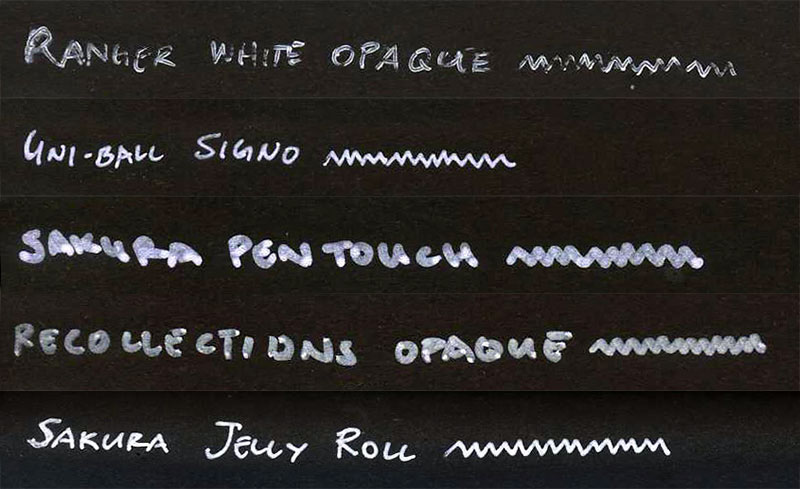 RANGER WHITE OPAQUE
UNI-BALL SIGNO
SAKURA PEN TOUCH
RECOLLECTIONS OPAQUE
SAKURA JELLY ROLL